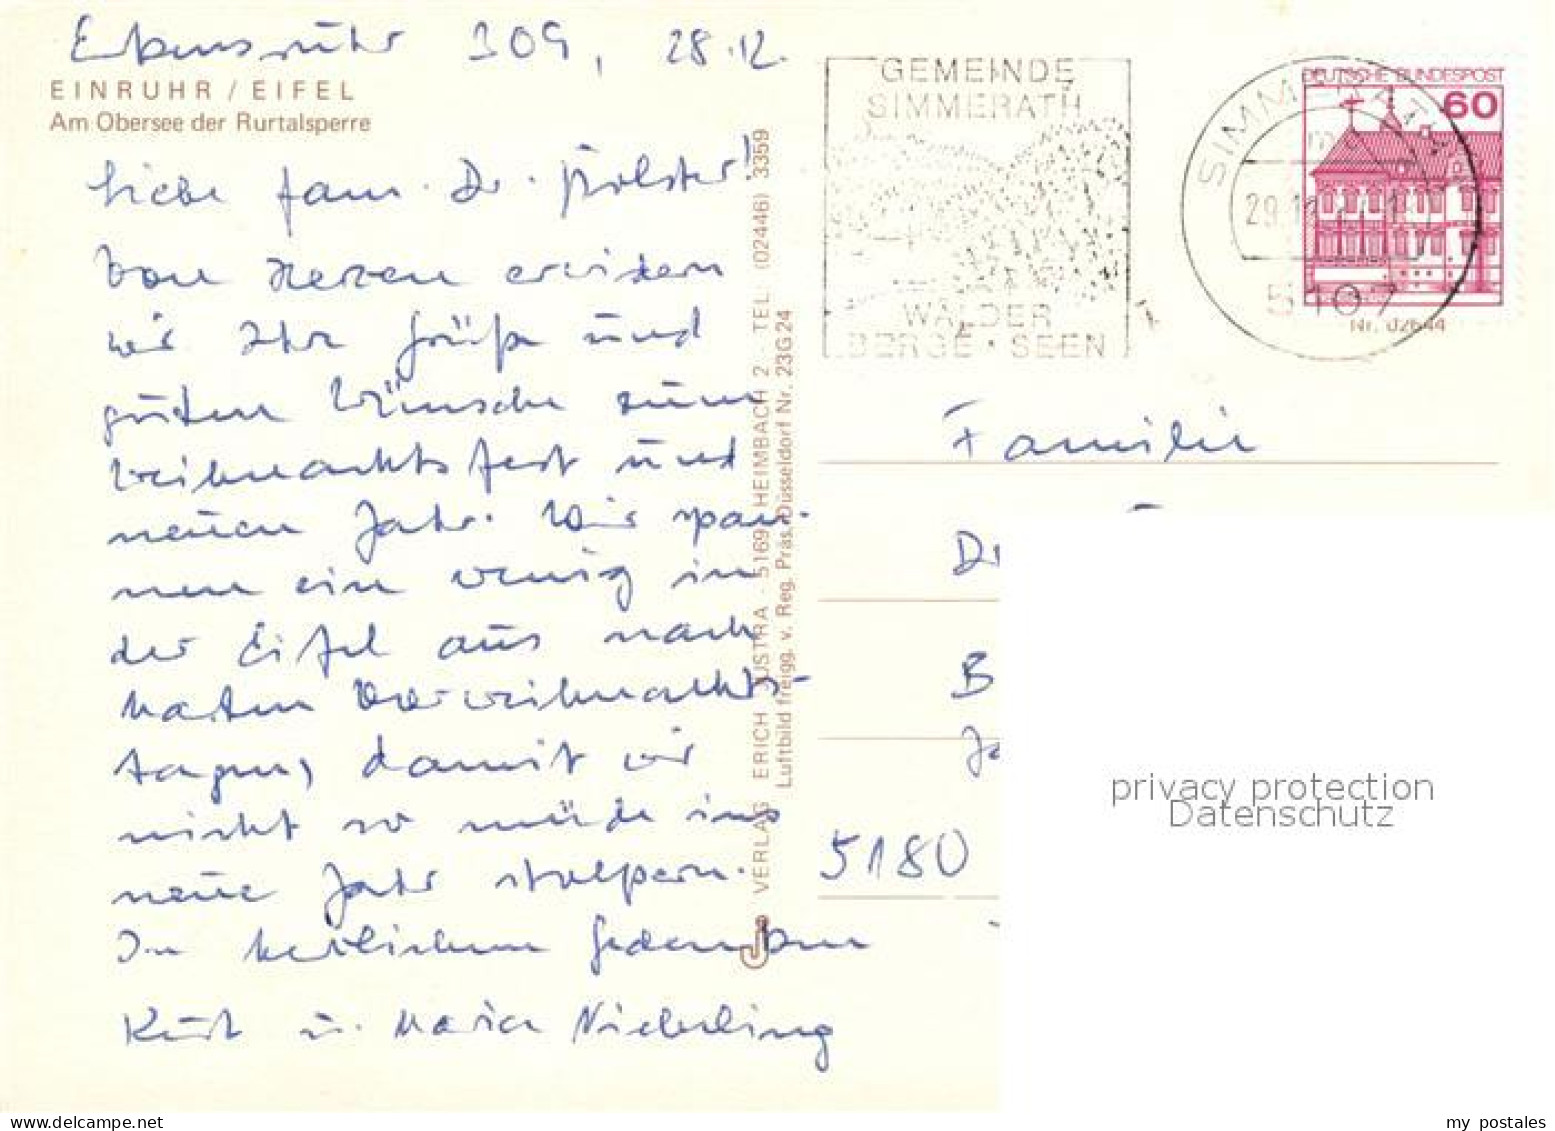 Erkensruhr 109, 28.12.
EINRUHR / EIFEL
Am Obersee der Rurtalsperre
Liebe Fam. Dr. Pölster!
Von Herzen erwidern
wir Ihr Grüße und
guten Wünsche zum
Weihnachtsfest und
neuen Jahr. Wir span-
nen ein wenig in
der Eifel aus nach
harten Vorweihnachts-
tagen, damit wir
nicht so müde ins
neue Jahr stolpern.
In herzlichem Gedenken
Kurt u. Maria Nieberling
VERLAG ERICH JUSTRA - 5169 HEIMBACH 2 - TEL: (02446) 3359
Luftbild freigg. v. Reg. Präs. Düsseldorf Nr. 23G24
GEMEINDE
SIMMERATH
WÄLDER
BERGE · SEEN
SIMMERATH
5107
DEUTSCHE BUNDESPOST
60
Nr. 02644
Familie
D
B
J
5180
privacy protection
Datenschutz
my postales